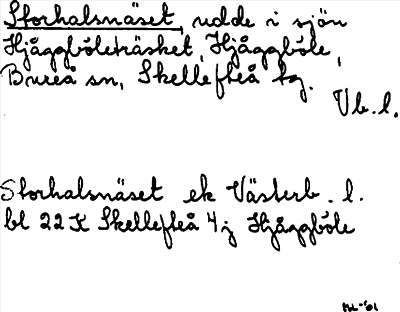 Storhalsnäset, udde i sjön
Hjåggböleträsket, Hjåggböle,
Bureå sn, Skellefteå tg.
Vb.l.
Storhalsnäset ek Västerb. l.
bl 22 K Skellefteå 4j Hjåggböle